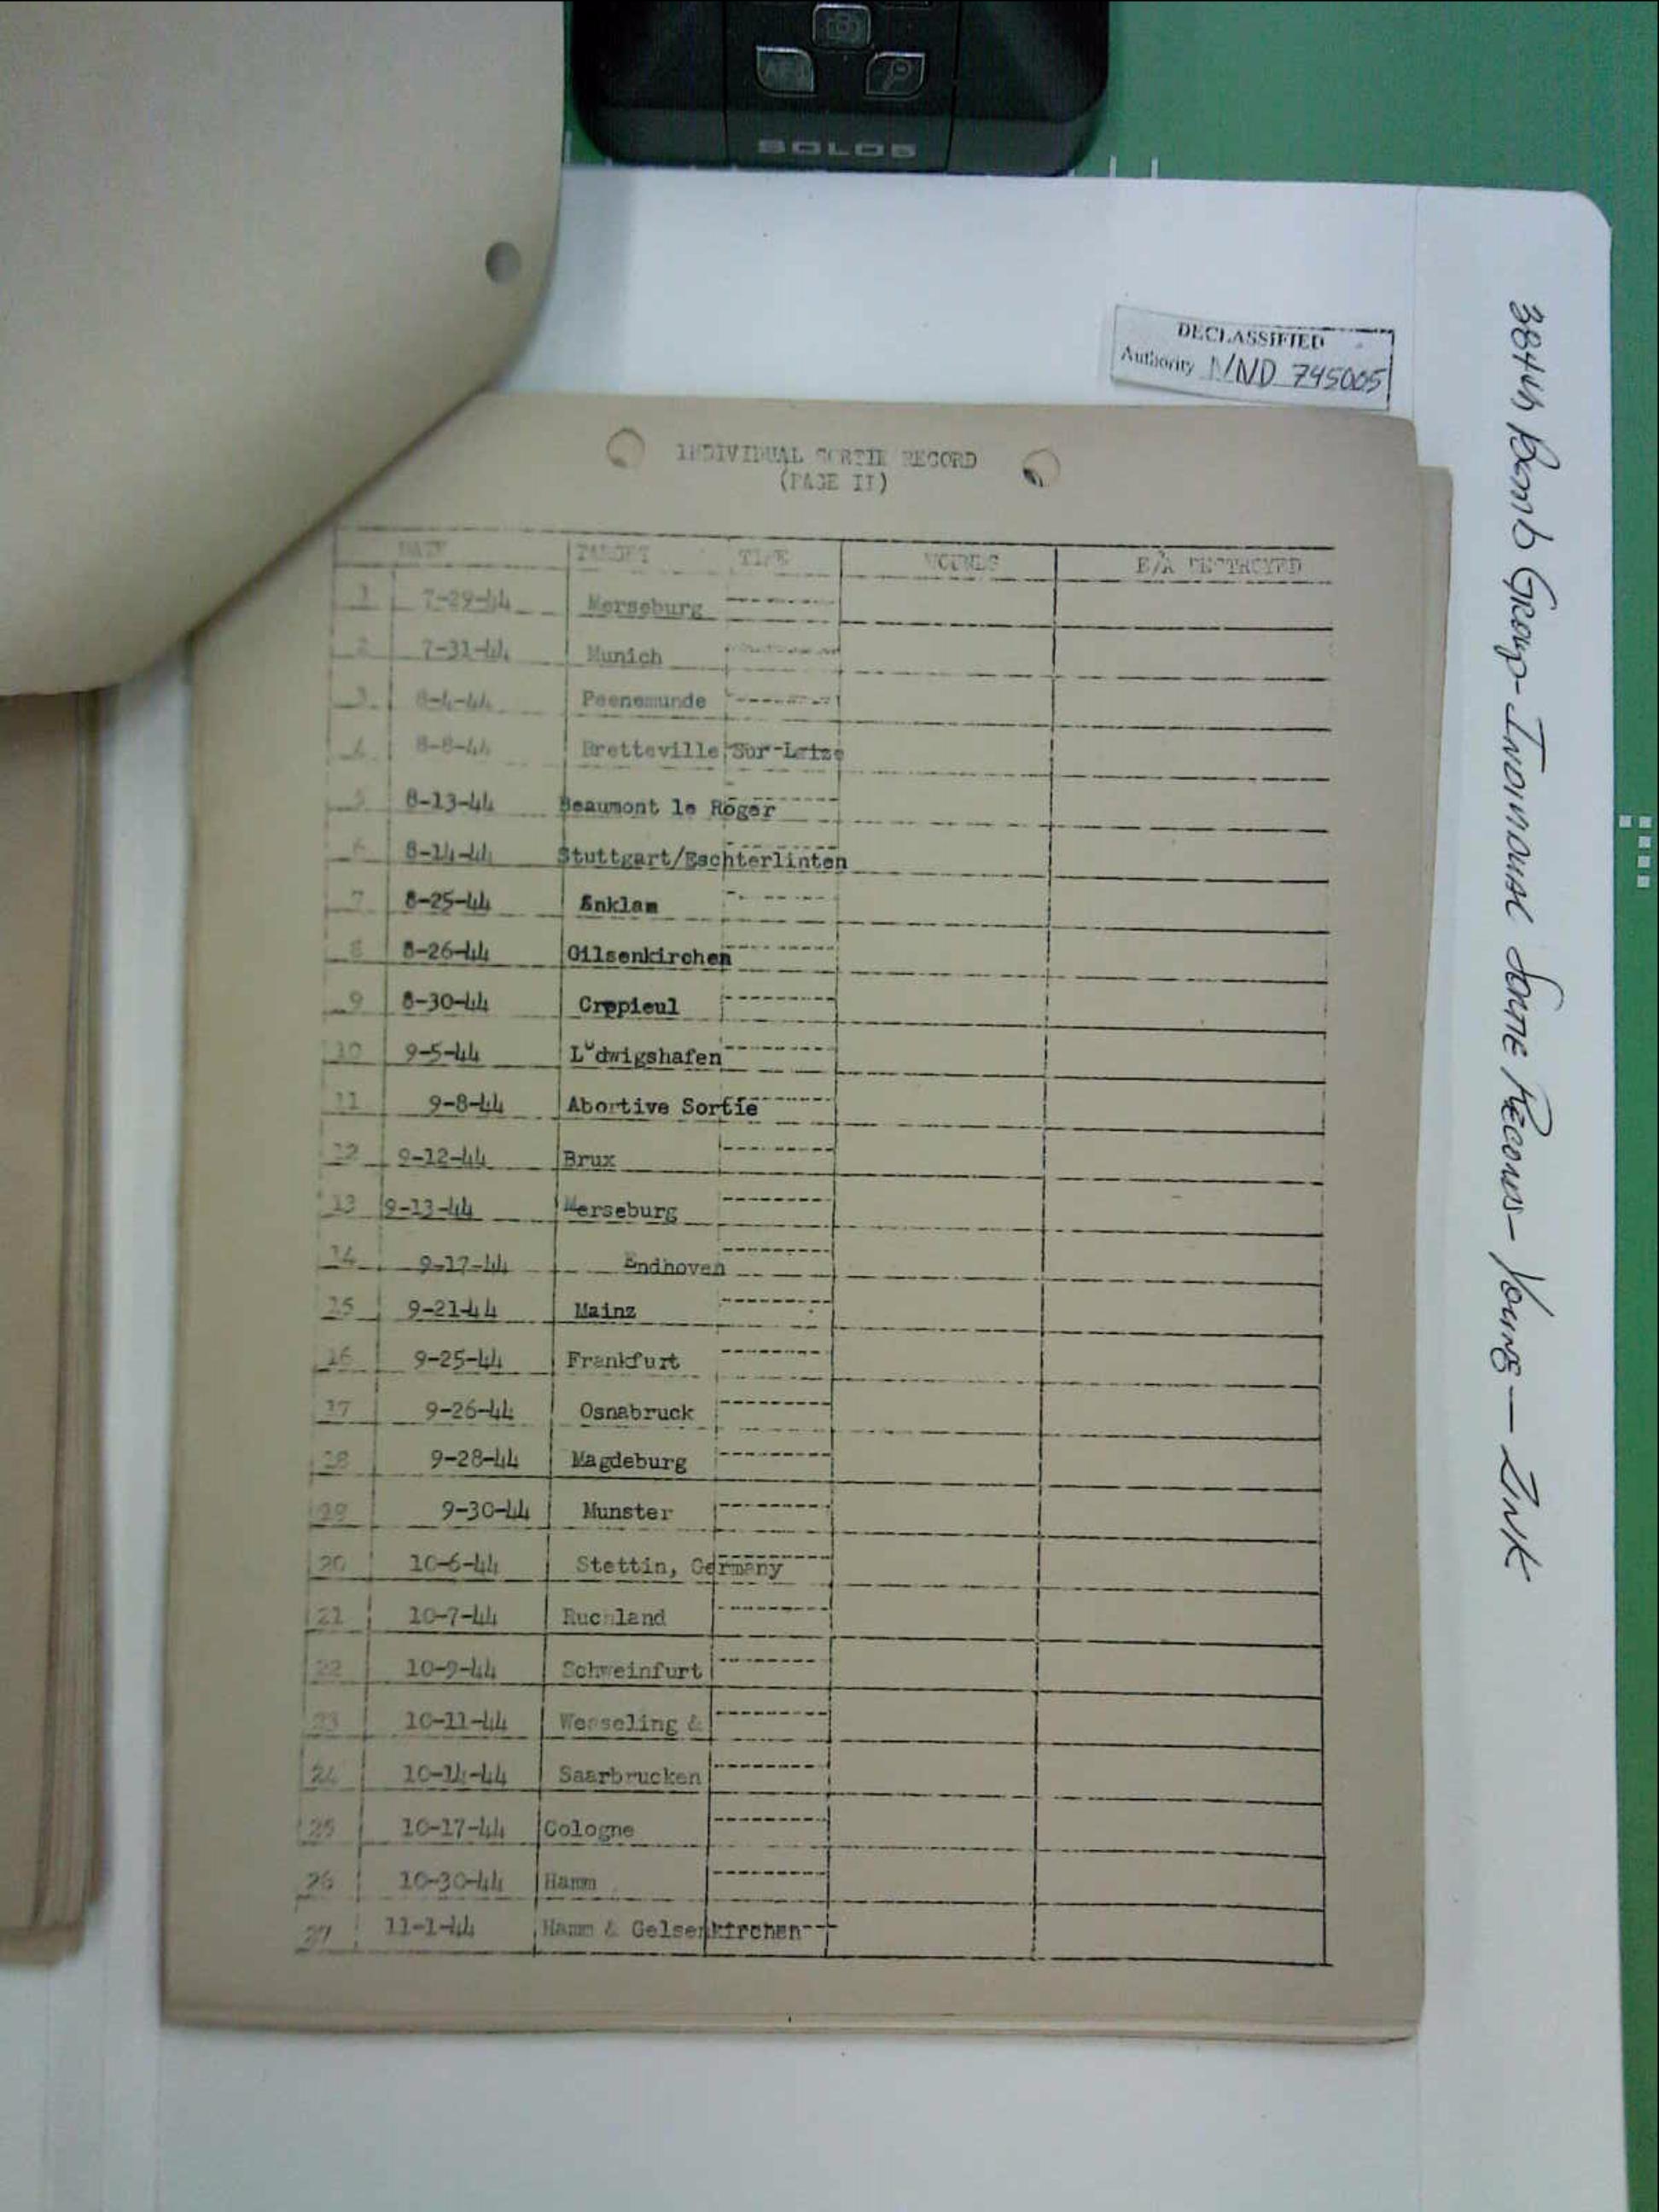 SOLO8
DECLASSIFIED
Authority NND 745005
384th Bomb Group - Individual Sortie Records - Young - Zink
INDIVIDUAL SORTIE RECORD
(PAGE II)
DATE TARGET TIME WOUNDS E/A DESTROYED
1 7-29-44 Merseburg ----------
2 7-31-44 Munich ----------
3 8-4-44 Peenemunde ----------
4 8-8-44 Bretteville Sur-Laize
5 8-13-44 Beaumont le Roger ----------
6 8-14-44 Stuttgart/Eschterlinten
7 8-25-44 Anklam ----------
8 8-26-44 Gilsenkirchen ----------
9 8-30-44 Crepieul ----------
10 9-5-44 Ludwigshafen ----------
11 9-8-44 Abortive Sortie ----------
12 9-12-44 Brux ----------
13 9-13-44 Merseburg ----------
14 9-17-44 Endhoven ----------
15 9-21-44 Mainz ----------
16 9-25-44 Frankfurt ----------
17 9-26-44 Osnabruck ----------
18 9-28-44 Magdeburg ----------
19 9-30-44 Munster ----------
20 10-6-44 Stettin, Germany ----------
21 10-7-44 Ruchland ----------
22 10-9-44 Schweinfurt ----------
23 10-11-44 Wesseling & ----------
24 10-14-44 Saarbrucken ----------
25 10-17-44 Cologne ----------
26 10-30-44 Hamm ----------
27 11-1-44 Hamm & Gelsenkirchen---